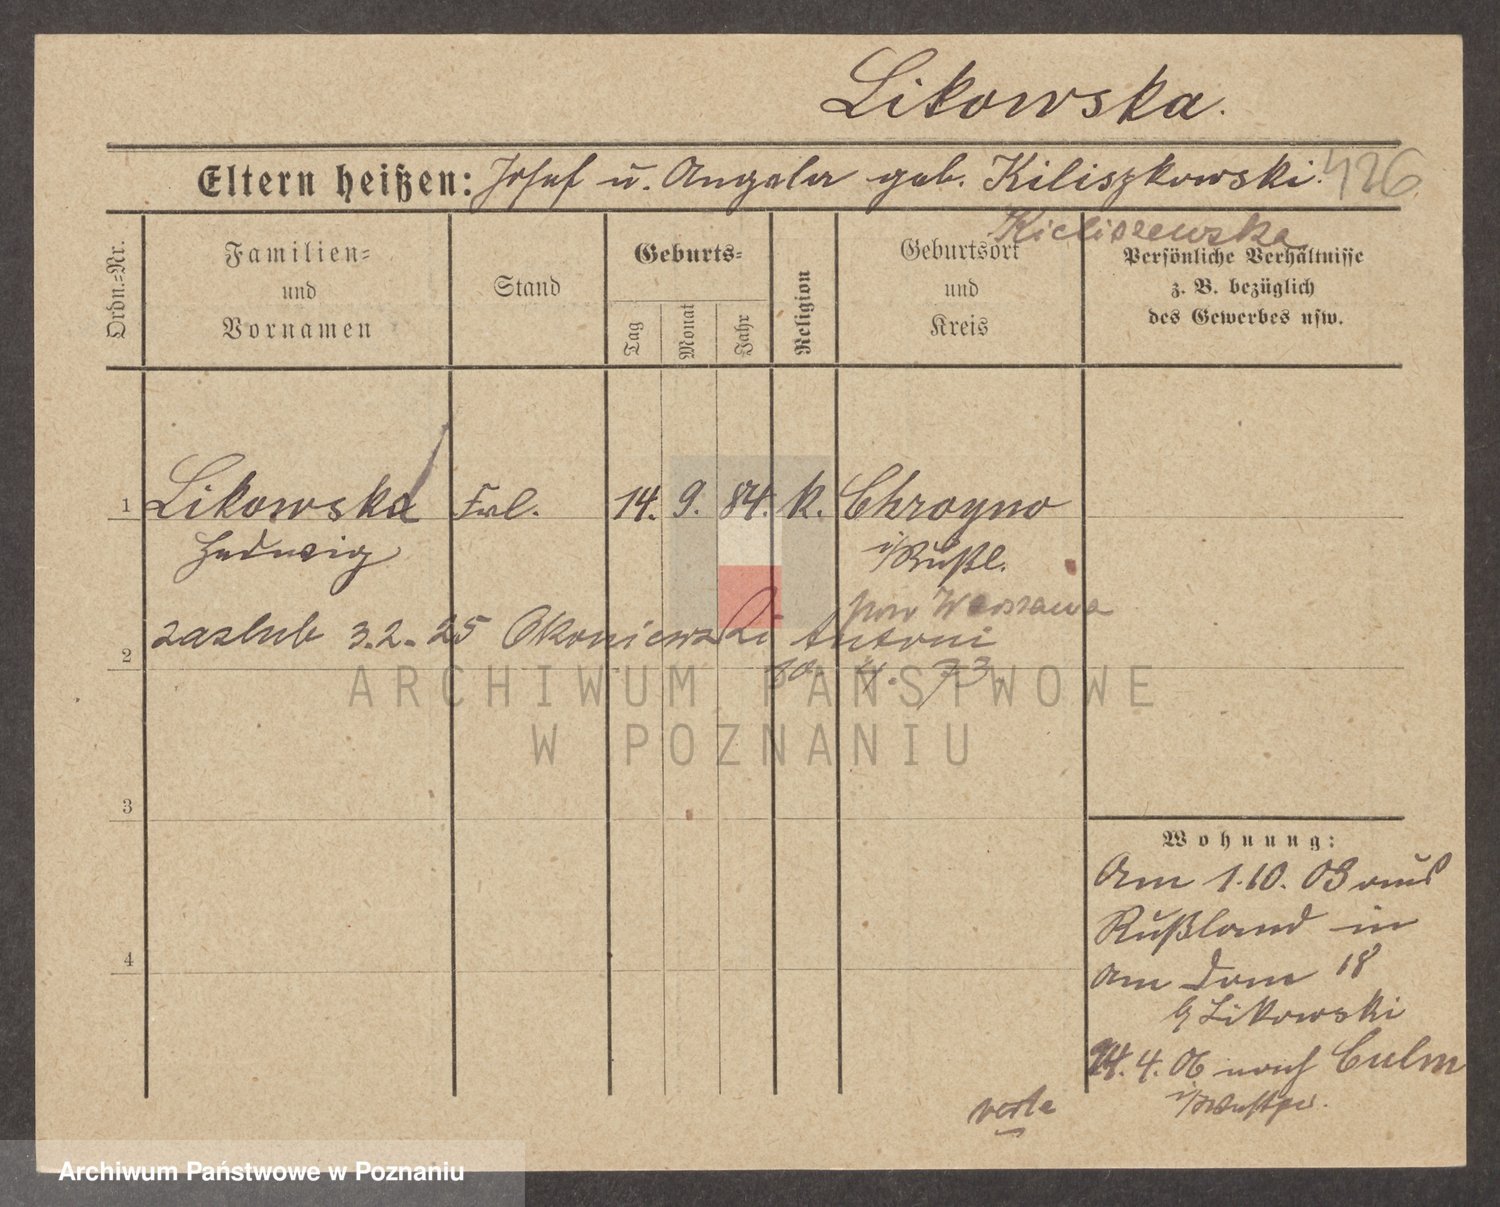 Likowska.
Eltern heißen: Josef u. Angela geb. Kiliszkowski. 426
Kieliszewska
Ordn.=Nr.
Familien=
und
Vornamen
Stand
Geburts=
Tag
Monat
Jahr
Religion
Geburtsort
und
Kreis
Persönliche Verhältnisse
z. B. bezüglich
des Gewerbes usw.
1 Likowska Frl. 14. 9. 84. k. Chrogno
Hedwig i/Rußl.
pow Warszawa
2 zaslub 3.2.25 Okoniewski Antoni
4. 73.
3
4
Wohnung:
Am 1.10.03 aus
Rußland in
Am Dom 18
b/Likowski
24.4.06 nach Culm
i/Westpr.
verte
ARCHIWUM PAŃSTWOWE
W POZNANIU
Archiwum Państwowe w Poznaniu